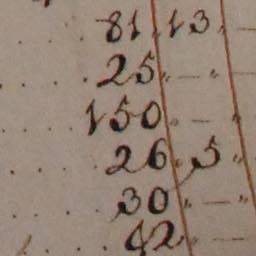 81 . 13 . —
25 " — " —
150 " — " —
26 . 5 "
30 " — " —
42 " —